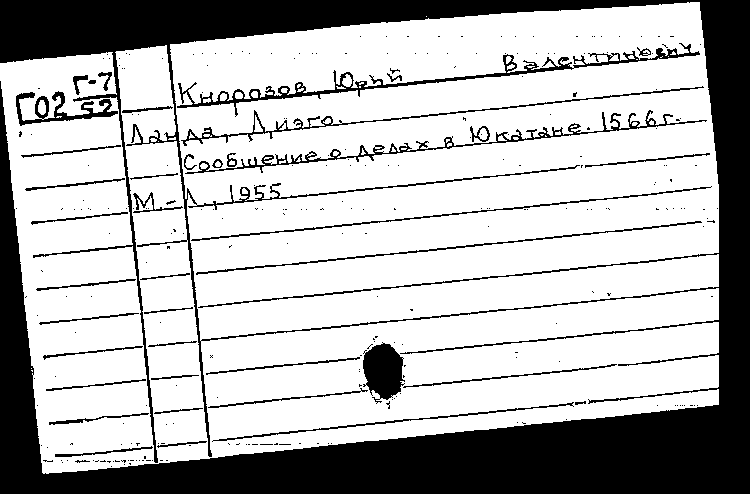 Г02 Г-7/52
Кнорозов, Юрий Валентинович
Ланда, Диэго.
Сообщение о делах в Юкатане. 1566 г.
М.-Л, 1955